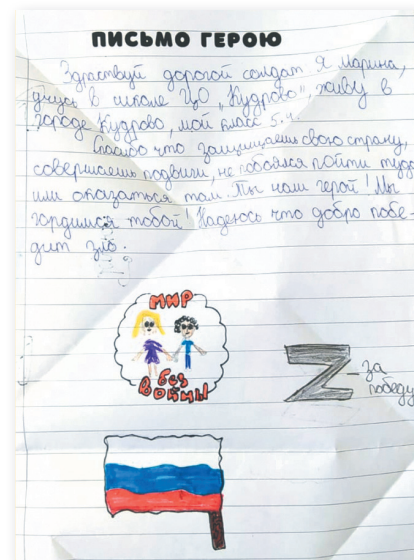 ПИСЬМО ГЕРОЮ
Здраствуй дорогой солдат Я Марина,
учусь в школе ЦО „Кудрово", живу в
городе Кудрово, мой класс 5.4.
Спасибо что защищаешь свою страну,
совершаешь подвиги, не побоялся пойти туда
или оказаться там. Ты наш герой! Мы
гордимся тобой! Надеюсь что добро побе-
дит зло.
МИР
без
войны
Z-за
победу